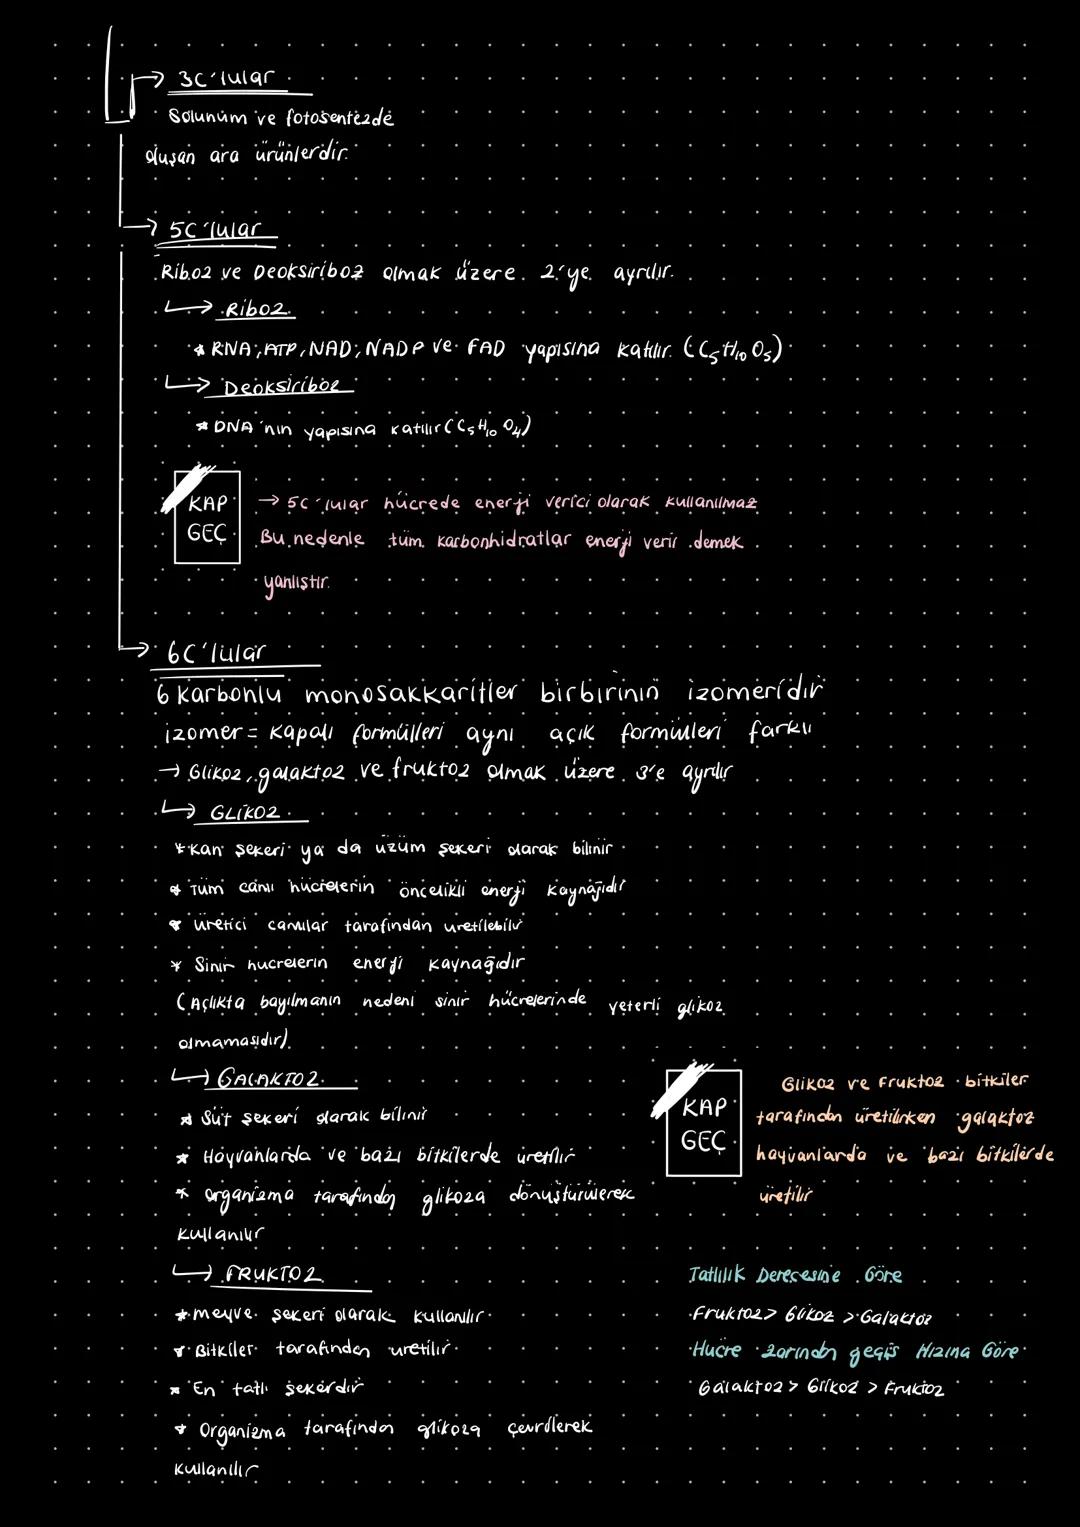 3C'lular
Solunum ve fotosentezde
oluşan ara ürünlerdir.
5C'lular
Riboz ve Deoksiriboz olmak üzere 2'ye ayrılır.
Riboz
* RNA, ATP, NAD, NADP ve FAD yapısına katılır. (C₅H₁₀O₅)
Deoksiriboz
* DNA'nın yapısına katılır (C₅H₁₀O₄)
KAP
GEÇ
→ 5C'lular hücrede enerji verici olarak kullanılmaz
Bu nedenle tüm karbonhidratlar enerji verir demek
yanlıştır.
6C'lular
6 karbonlu monosakkaritler birbirinin izomeridir
izomer = Kapalı formülleri aynı açık formülleri farklı
→ Glikoz, galaktoz ve fruktoz olmak üzere 3'e ayrılır
GLİKOZ
* Kan şekeri ya da üzüm şekeri olarak bilinir
* Tüm canlı hücrelerin öncelikli enerji kaynağıdır
* üretici canlılar tarafından üretilebilir
* Sinir hücrelerin enerji kaynağıdır
(Açlıkta bayılmanın nedeni sinir hücrelerinde yeterli glikoz
olmamasıdır)
GALAKTOZ
* Süt şekeri olarak bilinir
* Hayvanlarda ve bazı bitkilerde üretilir
* organizma tarafından glikoza dönüştürülerek
kullanılır
KAP
GEÇ
Glikoz ve Fruktoz bitkiler
tarafından üretilirken galaktoz
hayvanlarda ve bazı bitkilerde
üretilir
FRUKTOZ
* meyve şekeri olarak kullanılır
* Bitkiler tarafından üretilir
* En tatlı şekerdir
* Organizma tarafından glikoza çevrilerek
kullanılır
Tatlılık Derecesine Göre
Fruktoz > Glikoz > Galaktoz
Hücre zarından geçiş Hızına Göre
Galaktoz > Glikoz > Fruktoz